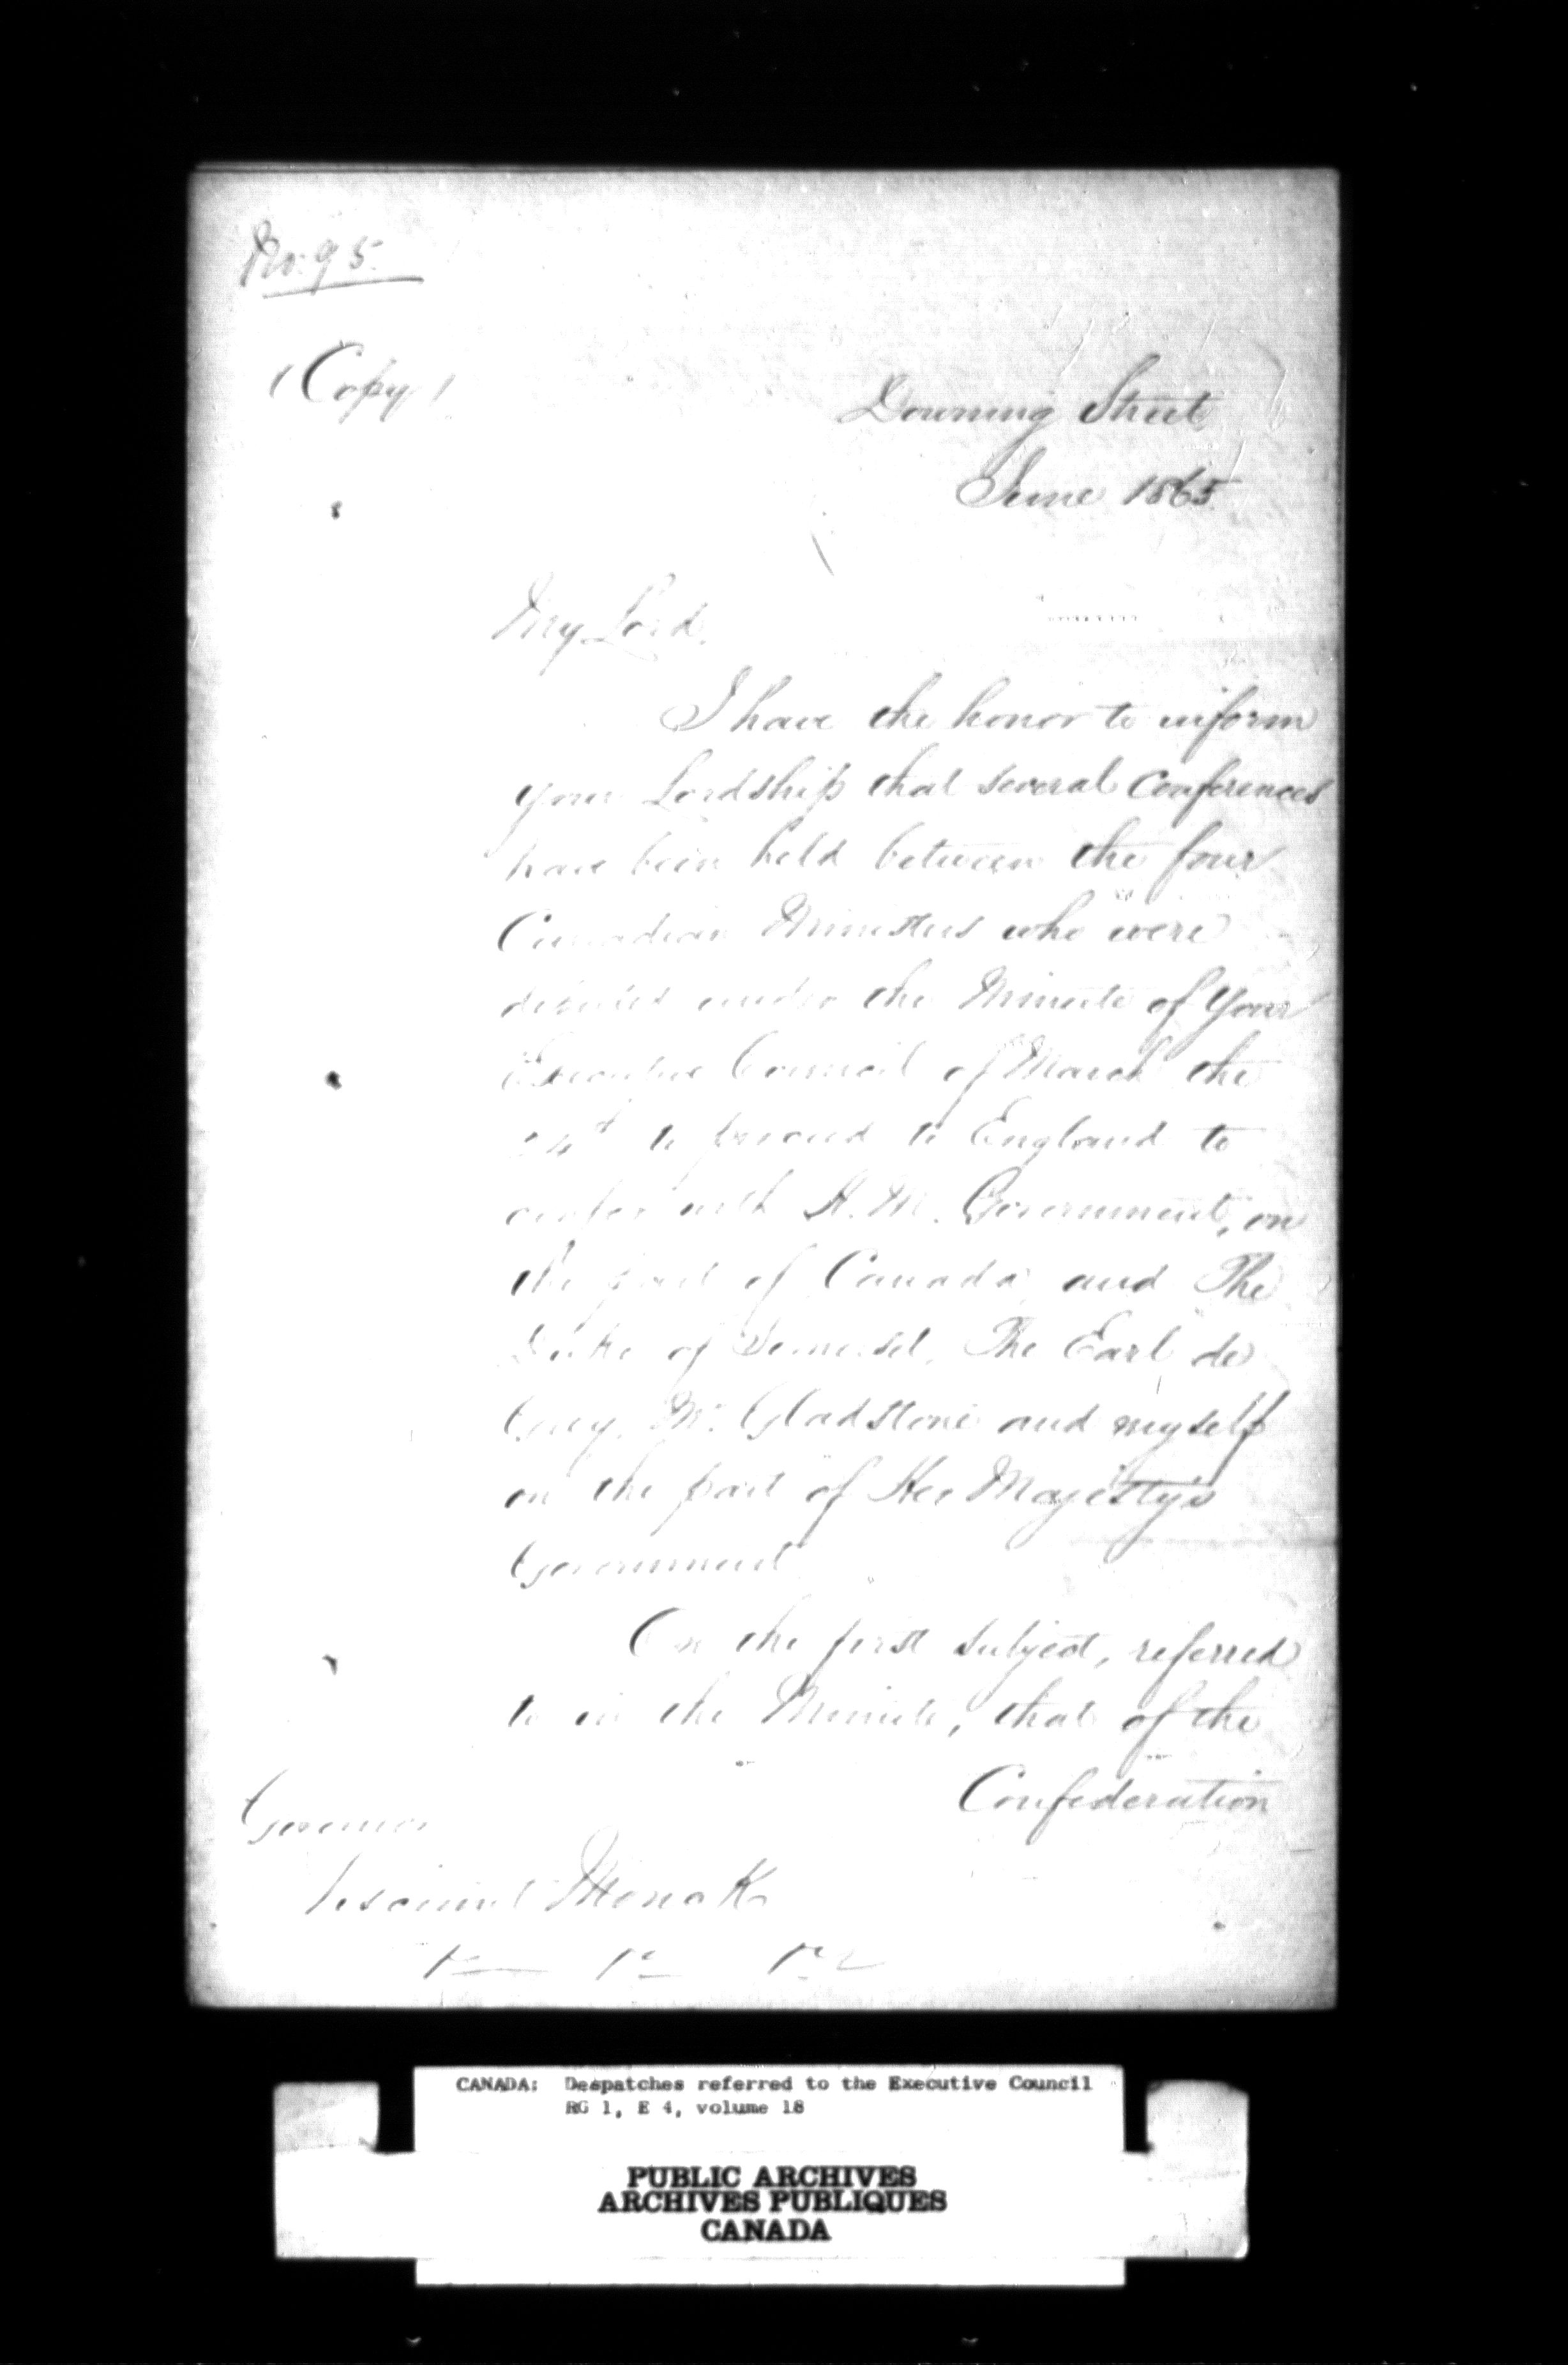 No. 95.
(Copy)
Downing Street
June 1865
My Lord,
I have the honor to inform
your Lordship that several Conferences
have been held between the four
Canadian Ministers who were
deputed under the Minute of Your
Executive Council of March the
24th to proceed to England to
confer with H. M. Government, on
the part of Canada, and The
Duke of Somerset, The Earl de
Grey, Mr. Gladstone and myself
on the part of Her Majesty's
Government
On the first subject, referred
to in the Minute, that of the
Confederation
Governor
Viscount Monck
CANADA: Despatches referred to the Executive Council
RG 1, E 4, volume 18
PUBLIC ARCHIVES
ARCHIVES PUBLIQUES
CANADA